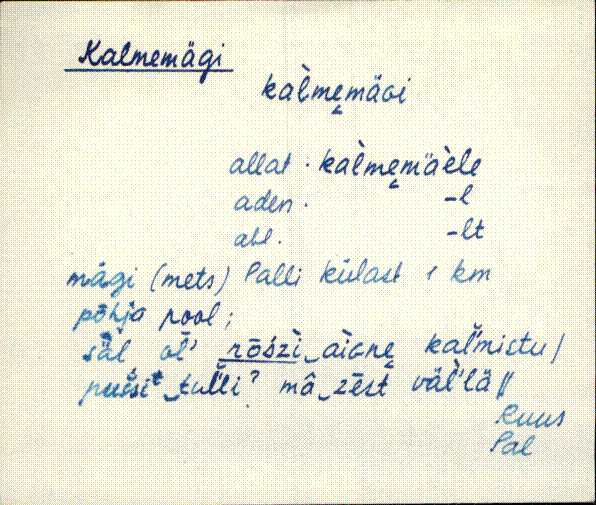 Kalmemägi
kàlmemäGi
allat. kàlmemäèle
aden. -l
abl. -lt
mägi (mets) Palli külast 1 km
põhja pool;
säl ol' rõśzì‿aiGne kal'mistu /
‿tul'li? mâ‿zēst väl'lä //
Ruus
Pal